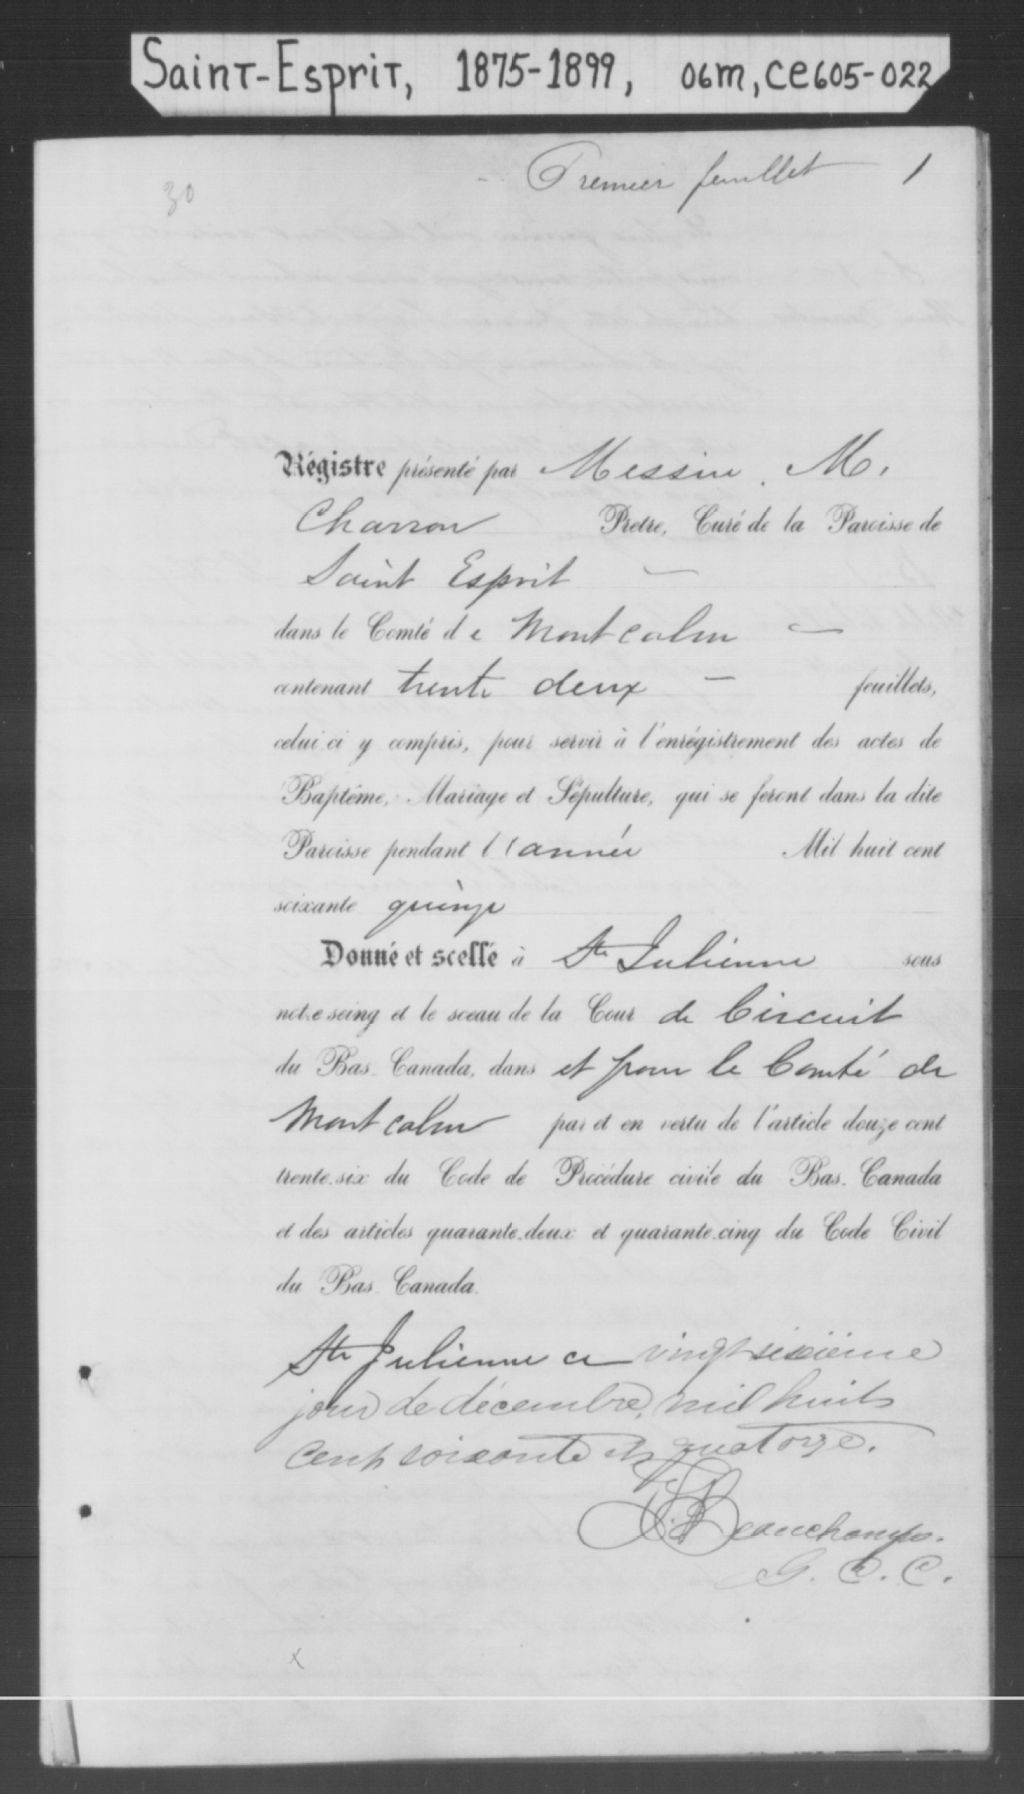 Saint-Esprit, 1875-1899, 06m, ce605-022
Premier feuillet 1
30
Régistre présenté par Messire M.
Charron Prêtre, Curé de la Paroisse de
Saint Esprit
dans le Comté de Montcalm
contenant trente deux feuillets,
celui-ci y compris, pour servir à l'enrégistrement des actes de
Baptême, Mariage et Sépulture, qui se feront dans la dite
Paroisse pendant l'année Mil huit cent
soixante quinze
Donné et scellé à Ste Julienne sous
notre seing et le sceau de la Cour de Circuit
du Bas-Canada, dans et pour le Comté de
Montcalm par et en vertu de l'article douze cent
trente-six du Code de Procédure civile du Bas-Canada
et des articles quarante-deux et quarante-cinq du Code Civil
du Bas-Canada.
Ste Julienne ce vingt sixième
jour de décembre, mil huits
cent soixante et quatorze.
Beauchamps.
G. C. C.
x